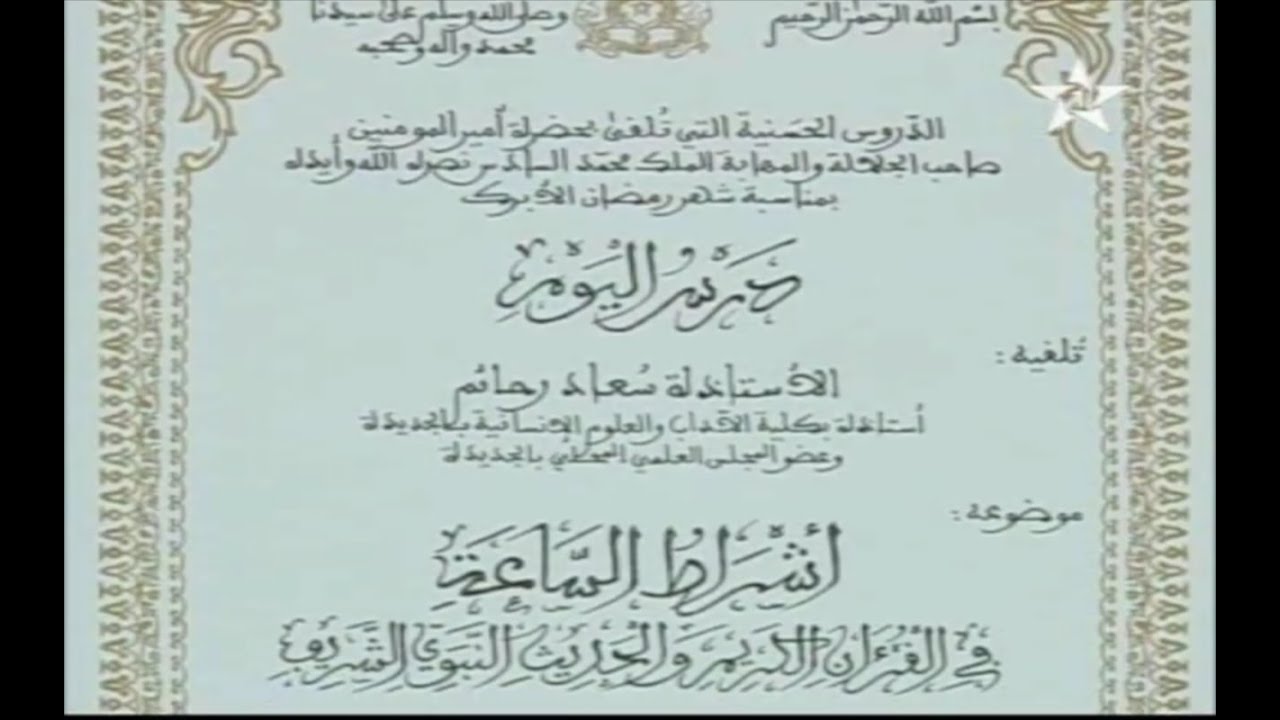 بسم الله الرحمن الرحيم
وصلى الله وسلم على سيدنا
محمد وآله وصحبه
الدروس الحسنية التي تُلقى بحضرة أمير المومنين
صاحب الجلالة والمهابة الملك محمد السادس نصره الله وأيده
بمناسبة شهر رمضان الأبرك
دَرْسُ الْيَوْمِ
تُلقيه :
الأستاذة سُعاد رحائم
أستاذة بكلية الآداب والعلوم الإنسانية بالجديدة
وعضو المجلس العلمي المحلي بالجديدة
موضوعه :
أَشْرَاطُ السَّاعَةِ
فِي الْقُرْءَانِ الْكَرِيمِ وَالْحَدِيثِ النَّبَوِيِّ الشَّرِيفِ